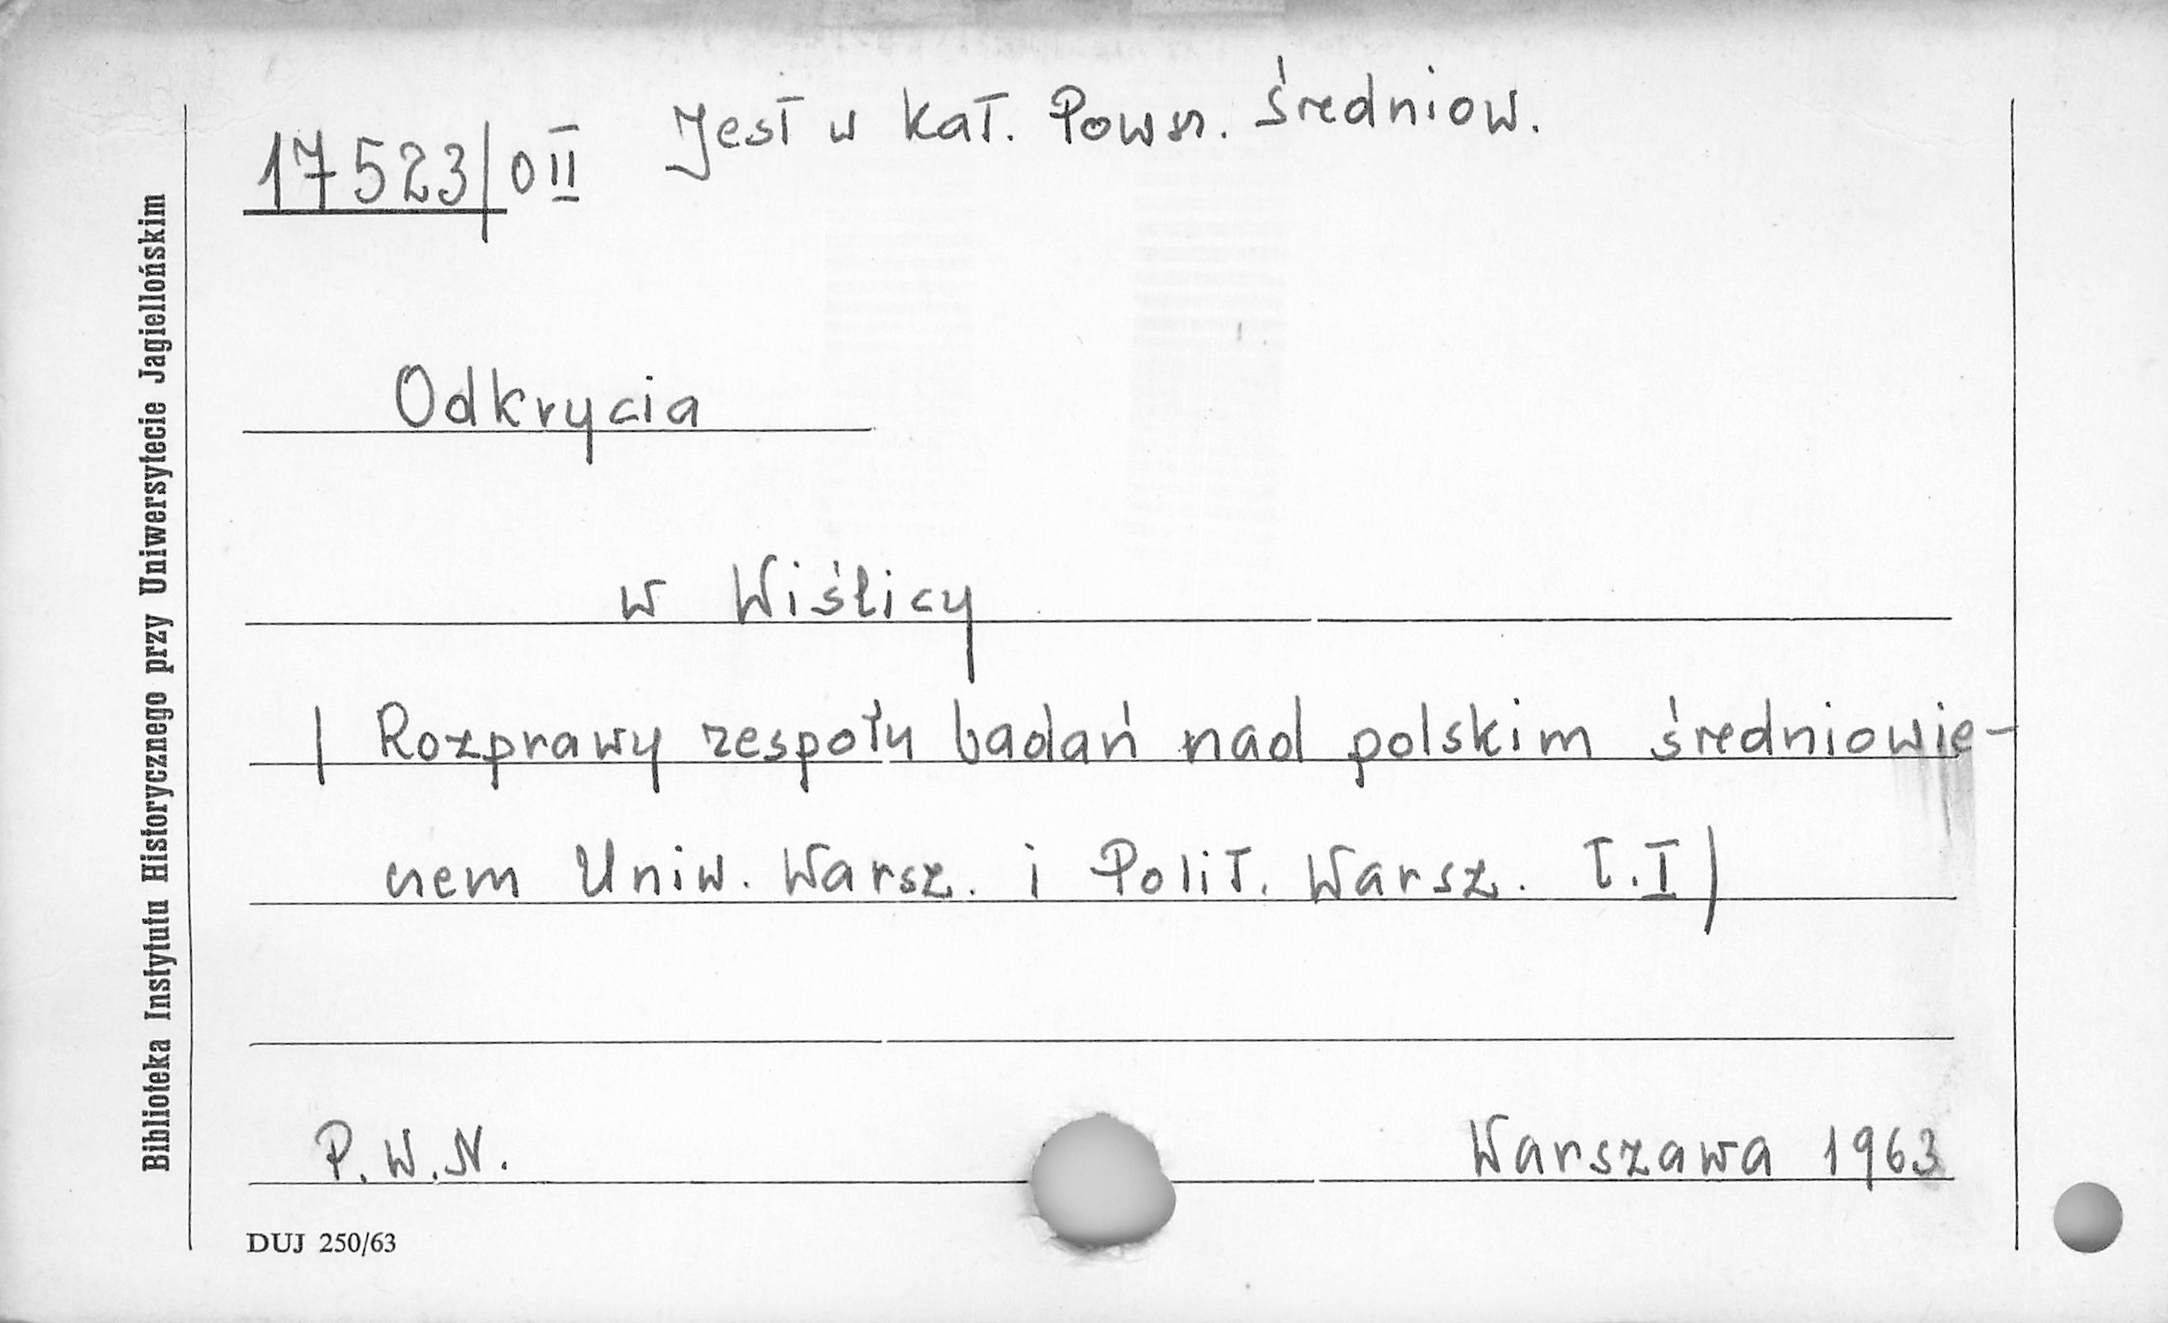 17523/OII Jest w kat. Powsz. średniow.
Odkrycia
w Wiślicy
/Rozprawy zespołu badań nad polskim średniowie-
czem Uniw. Warsz. i Polit. Warsz. t.I/
P.W.N. Warszawa 1963
DUJ 250/63
Biblioteka Instytutu Historycznego przy Uniwersytecie Jagiellońskim